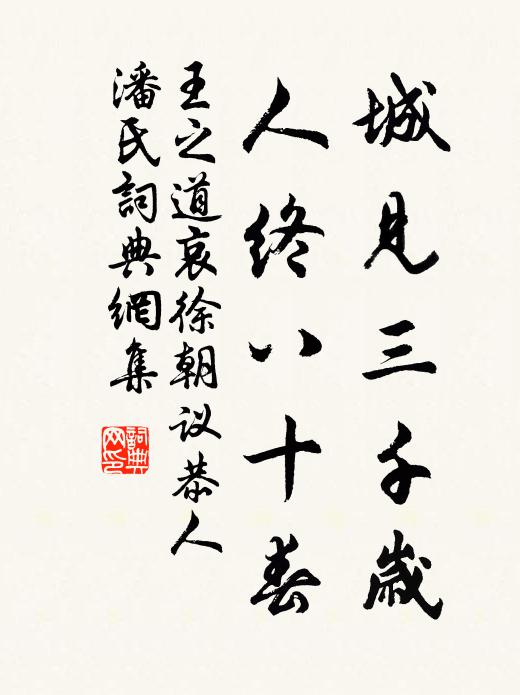 城見三千歲
人終八十春
王之道哀徐朝议恭人
潘氏詞典網集
詞典网印